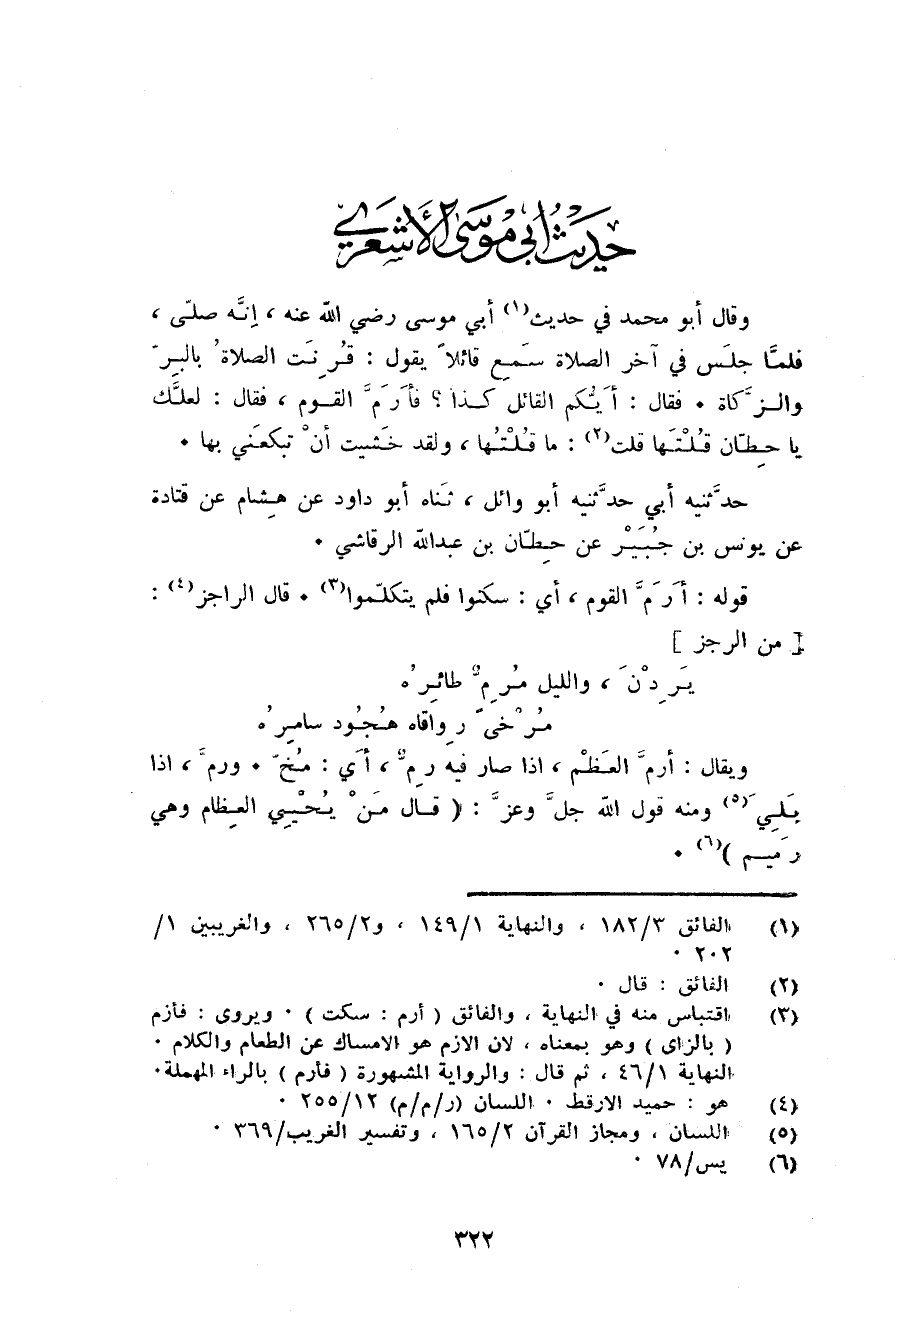 حديث أبي موسى الأشعري
وقال أبو محمد في حديث(١) أبي موسى رضي الله عنه ، إنَّه صلّى ،
فلمَّا جلَس في آخر الصلاة سَمِع قائلاً يقول : قُرِنَت الصلاةُ بالبِرّ
والزَّكاة ٠ فقال : أيُّكم القائل كذا ؟ فأرَمَّ القوم ، فقال : لعلَّك
يا حِطّان قُلْتَها قلت(٢) : ما قُلْتُها ، ولقد خَشيت أنْ تبكعَني بها ٠
حدَّثنيه أبي حدَّثنيه أبو وائل ، ثَناه أبو داود عن هِشام عن قتادة
عن يونس بن جُبَيْر عن حِطّان بن عبدالله الرقاشي ٠
قوله : أرَمَّ القوم ، أي : سكنوا فلم يتكلّموا(٣) ٠ قال الراجز(٤) :
[ من الرجز ]
يَرِدْنَ ، والليل مُرِمٌّ طائِرُه
مُرْخىً رِواقاه هُجُود سامِرُه
ويقال : أرمَّ العَظْم ، اذا صار فيه رِمٌّ ، أي : مُخّ ٠ ورمَّ ، اذا
بَلِيَ(٥) ومنه قول الله جلَّ وعزَّ : ( قـال مَنْ يُحْيِي العِظام وهي
رَمِيم )(٦) ٠
(١) الفائق ١٨٢/٣ ، والنهاية ١٤٩/١ ، و٢٦٥/٢ ، والغريبين ١/
٢٠٢ ٠
(٢) الفائق : قال ٠
(٣) اقتباس منه في النهاية ، والفائق ( أرم : سكت ) ٠ ويروى : فأزم
( بالزاى ) وهو بمعناه ، لان الازم هو الامساك عن الطعام والكلام ٠
النهاية ٤٦/١ ، ثم قال : والرواية المشهورة ( فأرم ) بالراء المهملة٠
(٤) هو : حميد الارقط ٠ اللسان (ر/م/م) ٢٥٥/١٢ ٠
(٥) اللسان ، ومجاز القرآن ١٦٥/٢ ، وتفسير الغريب/٣٦٩ ٠
(٦) يس/٧٨ ٠
٣٢٢